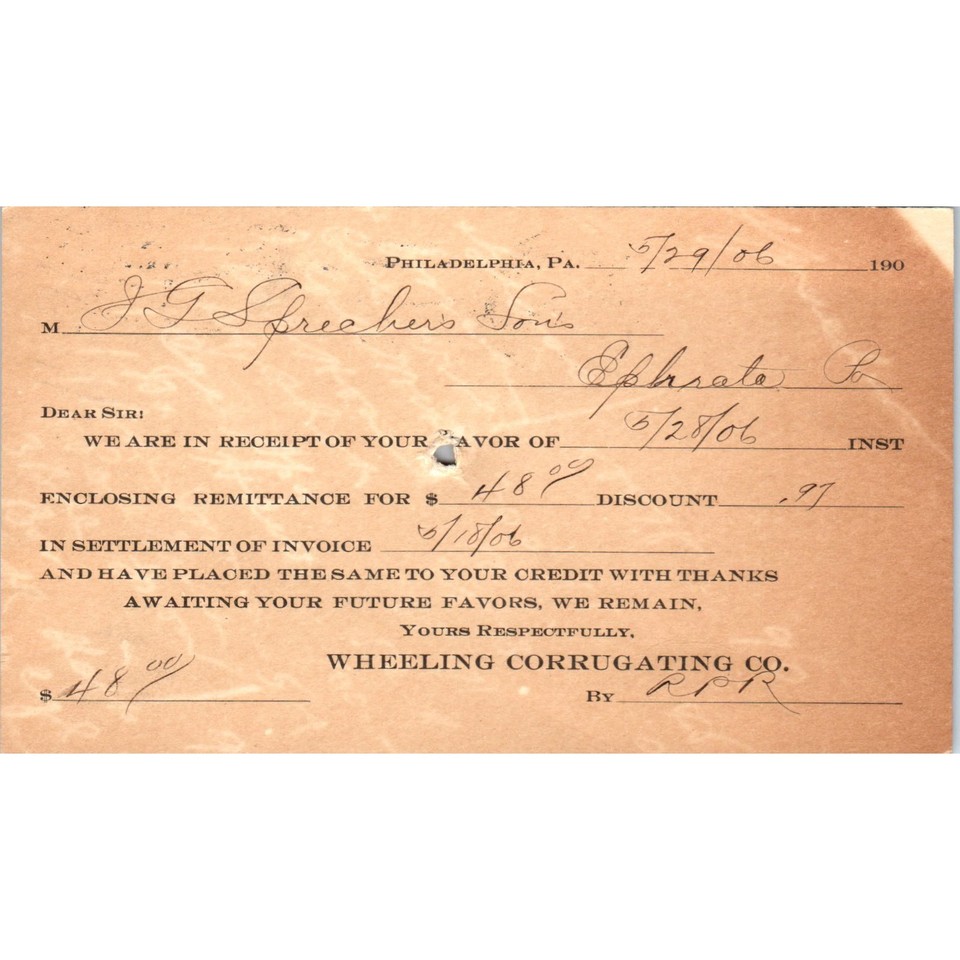 PHILADELPHIA, PA. 5/29/06 190
M J G Sprecher's Sons
Ephrata Pa
DEAR SIR:
WE ARE IN RECEIPT OF YOUR FAVOR OF 5/28/06 INST
ENCLOSING REMITTANCE FOR $ 48 00 DISCOUNT .97
IN SETTLEMENT OF INVOICE 5/18/06
AND HAVE PLACED THE SAME TO YOUR CREDIT WITH THANKS
AWAITING YOUR FUTURE FAVORS, WE REMAIN,
YOURS RESPECTFULLY,
WHEELING CORRUGATING CO.
$ 48 00 BY RPR